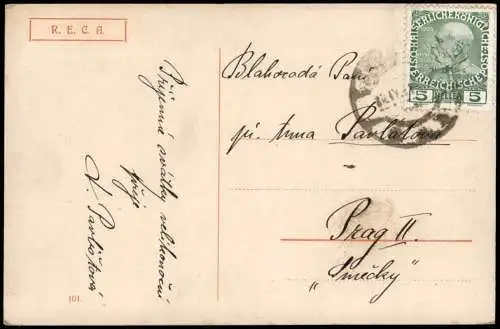 R. E. C. A.
Příjemné svátky velikonoční
přeje
A. Pavlištová
101.
Blahorodá Paní
pí. Anna Pavlatova
Prag II.
„Smečky"
KAISERLICHE KÖNIGL
ÖSTERREICHISCHE POST
5 HELLER 5